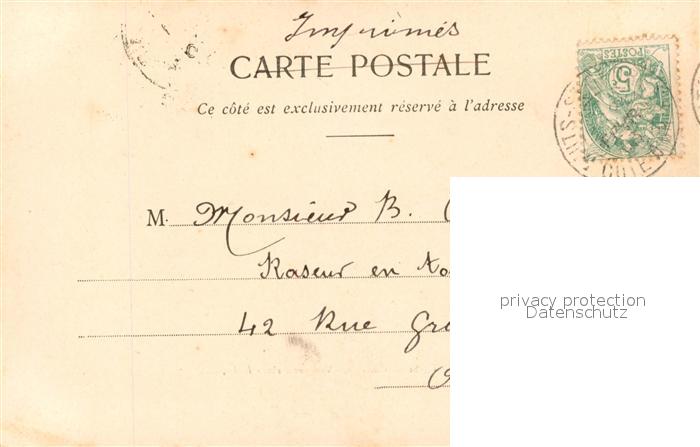 Imprimés
CARTE POSTALE
POSTES
5c
Ce côté est exclusivement réservé à l'adresse
CÔTE D'
M. Monsieur B.
Raseur en
42 Rue
privacy protection
Datenschutz